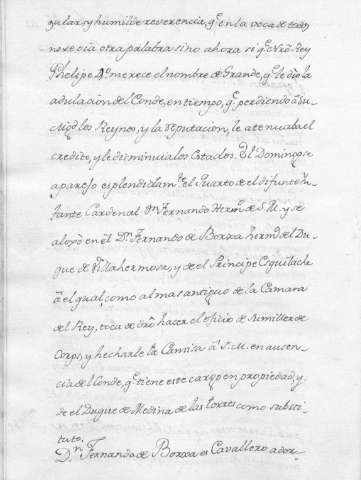 gular, y humilde reverencia, q.e en la voca de todos,
no se oia otra palabra sino ahora si q.e N.ro Rey
Phelipe 4.o merece el nombre de Grande, q.e le dio la
adulacion del Conde, en tiempo, q.e perdiendo a Su
Mag.d los Reynos, y la reputacion, le atenuaba el
credito, y le disminuia los Estados. El Domingo se
aparejo esplendidam.te el Quarto de el difunto In-
fante Cardenal D.n Fernando Herm.o de S.M. y se
aloxó en él D.n Fernando de Borxa herm.o del Du-
que de Villahermosa, y de el Principe Esquilache
à el qual, como al mas antiguo de la Camara
del Rey, toca de dro hacer el oficio de Sumiller de
Corps, y hecharle la Camisa à S.M. en ausen-
cia del Conde, q.e tiene este cargo en propiedad, y
de el Duque de Medina de las Torres como substi-
tuto.
D.n Fernando de Borxa es Cavallero ador-